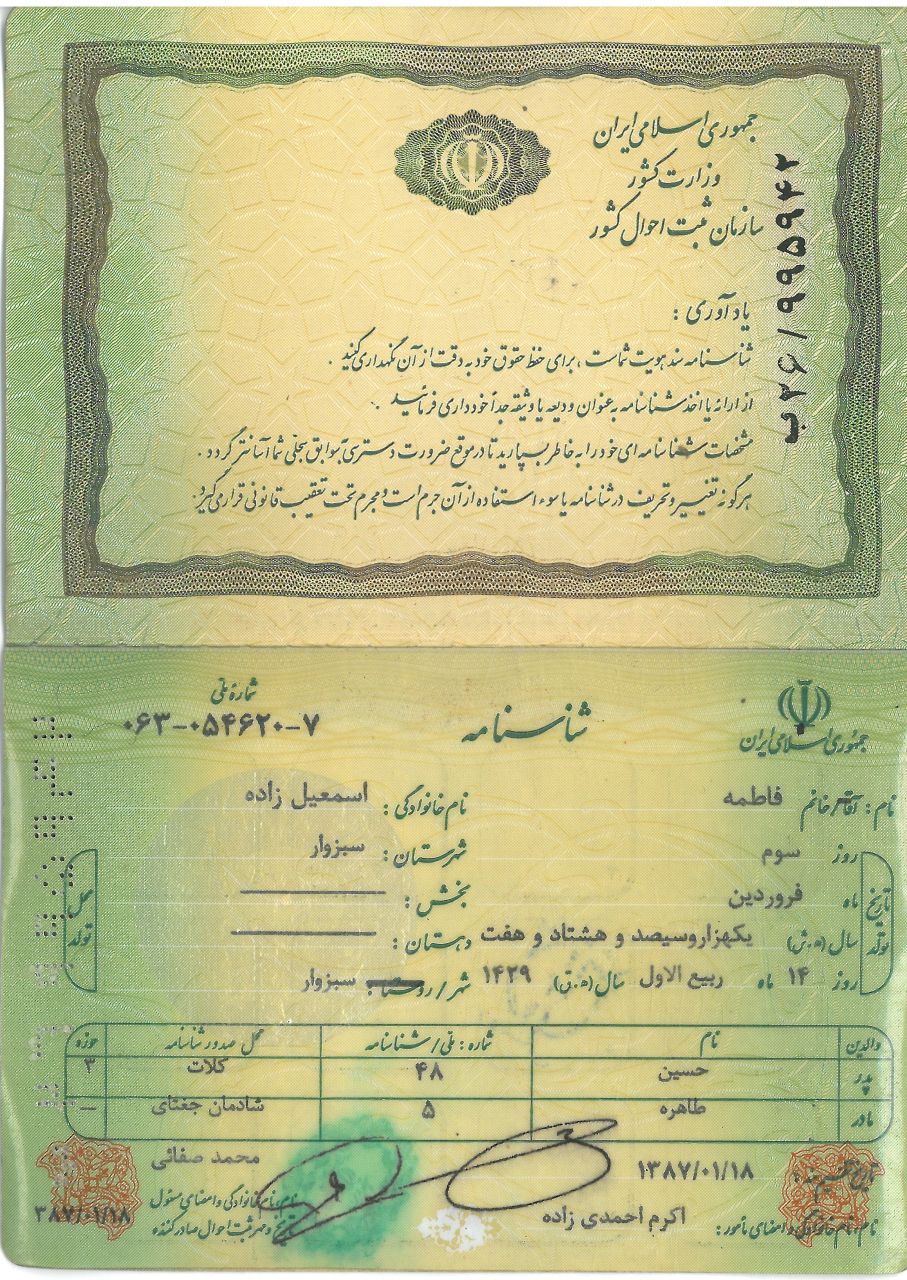 جمهوری اسلامی ایران
وزارت کشور
سازمان ثبت احوال کشور
ب۲۶/۹۹۵۹۴۲
یادآوری :
شناسنامه سند هویت شماست ، برای حفظ حقوق خود به دقت از آن نگهداری کنید .
از ارائه یا اخذ شناسنامه به عنوان ودیعه یا وثیقه جداً خودداری فرمائید .
مشخصات شناسنامه ای خود را به خاطر بسپارید تا در موقع ضرورت دسترسی به سوابق سجلی شما آسانتر گردد .
هرگونه تغییر و تحریف در شناسنامه یا سوء استفاده از آن جرم است و مجرم تحت تعقیب قانونی قرار می گیرد .
جمهوری اسلامی ایران
شناسنامه
شماره ملی
۰۶۳-۰۵۴۶۲۰-۷
نام : آقا/خانم فاطمه نام خانوادگی : اسمعیل زاده
تاریخ تولد
روز سوم
ماه فروردین
سال (ه.ش) یکهزاروسیصد و هشتاد و هفت
روز ۱۴ ماه ربیع الاول سال (ه.ق) ۱۴۲۹
محل تولد
شهرستان : سبزوار
بخش :
دهستان :
شهر/روستا : سبزوار
والدین نام شماره : ملی/شناسنامه محل صدور شناسنامه حوزه
پدر حسین ۴۸ کلات ۳
مادر طاهره ۵ شادمان جغتای
تاریخ تنظیم سند : ۱۳۸۷/۰۱/۱۸
نام، نام خانوادگی و امضای مأمور : اکرم احمدی زاده
محمد صفائی
نام، نام خانوادگی و امضای مسئول
تاریخ و مهر ثبت احوال صادرکننده
۱۳۸۷/۰۱/۱۸